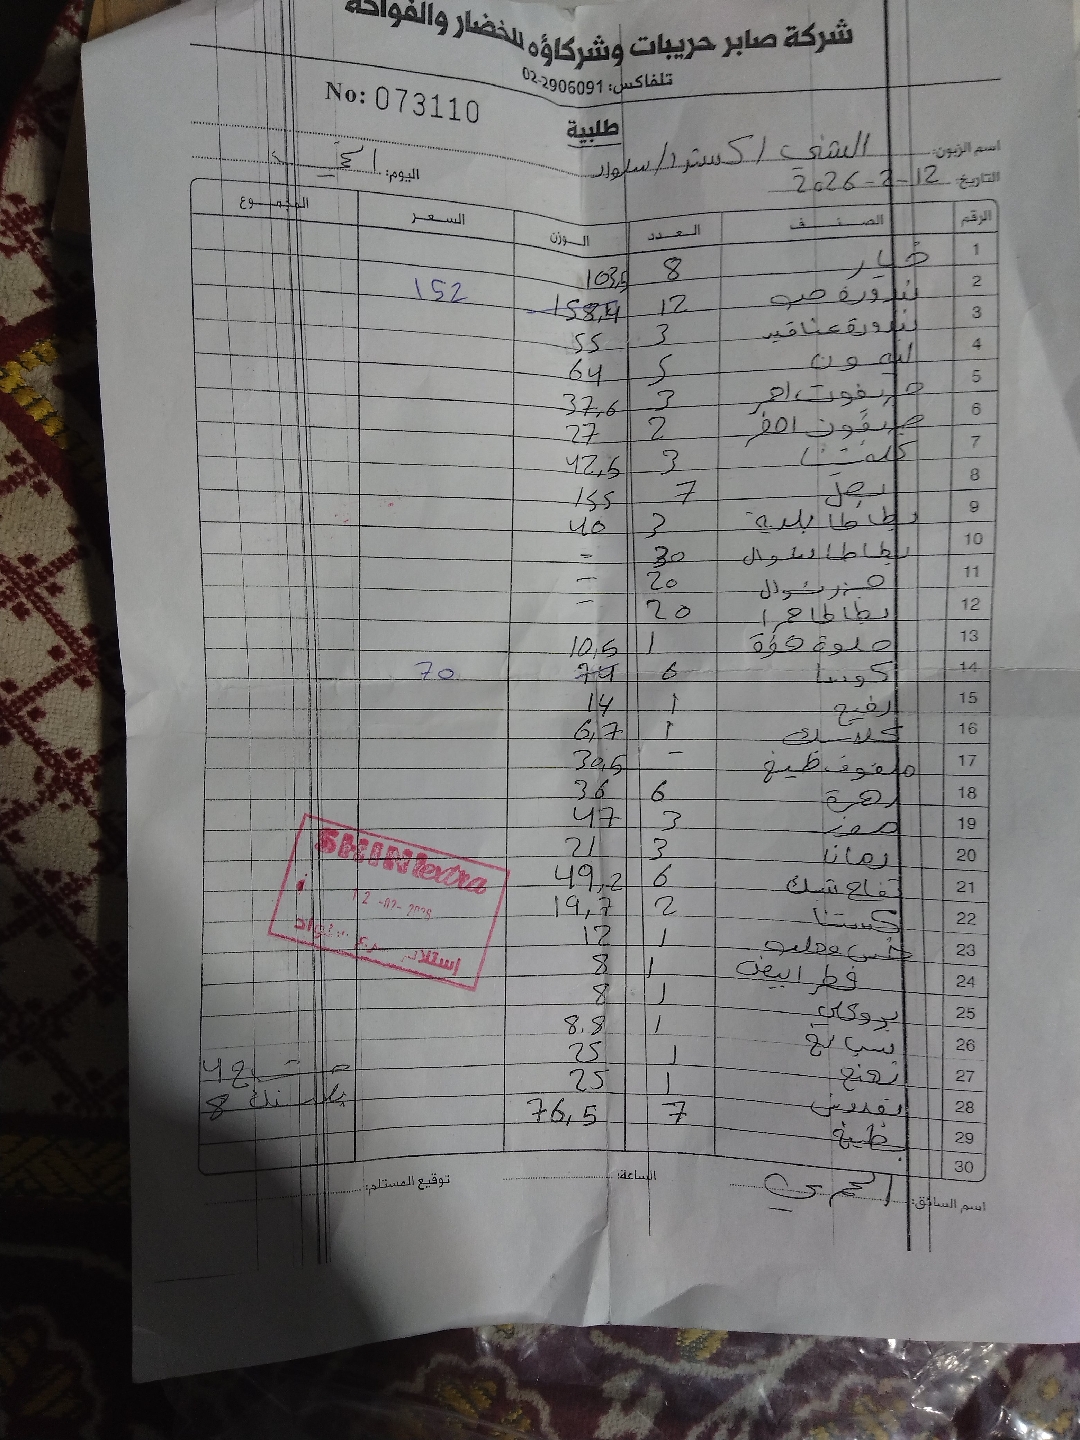 شركة صابر حريبات وشركاؤه للخضار والفواكه
تلفاكس: 02-2906091
No: 073110
طلبية
اسم الزبون: الشني اكسترا/سلواد
اليوم:
التاريخ: 2026-2-12
الرقم الصنف العدد الوزن السعر المجموع
1 خيار 8 103,5
2 بندورة حب 12 158,4 152
3 بندورة عناقيد 3 55
4 ليمون 5 64
5 جريفوت احمر 3 37,6
6 جريفوت اصفر 2 27
7 كلمنتينا 3 42,5
8 بصل 7 155
9 بطاطا بلدية 3 40
10 بطاطا شوال 30 -
11 جزر شوال 20 -
12 بطاطا حمرا 20 -
13 حلوة 1 10,5
14 كوسا 6 74 70
15 1 14
16 1 6,7
17 ملفوف - 30,5
18 زهرة 6 36
19 موز 3 47
20 رمانا 3 21
21 تفاح 6 49,2
22 كستنا 2 19,7
23 خس 1 12
24 فطر ابيض 1 8
25 بروكلي 1 8
26 سبانخ 1 8.8
27 نعنع 1 25 4
28 بقدونس 1 25 8
29 بطيخ 7 76,5
30
SHINI extra
12-02-2026
استلام فرع سلواد
اسم السائق:
الساعة:
توقيع المستلم: